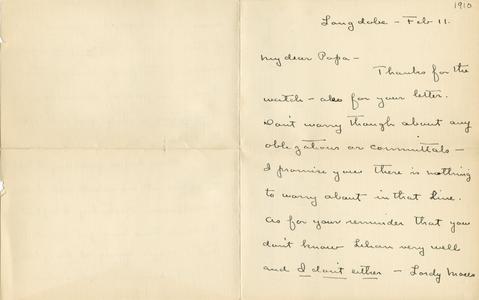 1910
Langdale - Feb 11.
My dear Papa -
Thanks for the
watch - also for your letter.
Don't worry though about any
obligations or committals -
I promise you there is nothing
to worry about in that line.
As for your reminder that you
don't know Lilian very well
and I don't either - Lordy